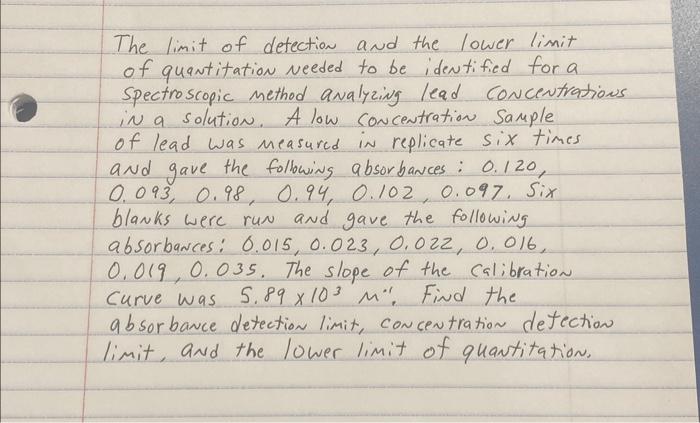 The limit of detection and the lower limit
of quantitation needed to be identified for a
spectroscopic method analyzing lead concentrations
in a solution. A low concentration sample
of lead was measured in replicate six times
and gave the following absorbances: 0.120,
0.093, 0.98, 0.94, 0.102, 0.097. Six
blanks were run and gave the following
absorbances: 0.015, 0.023, 0.022, 0.016,
0.019, 0.035. The slope of the calibration
curve was 5.89 x 10³ M⁻¹. Find the
absorbance detection limit, concentration detection
limit, and the lower limit of quantitation.